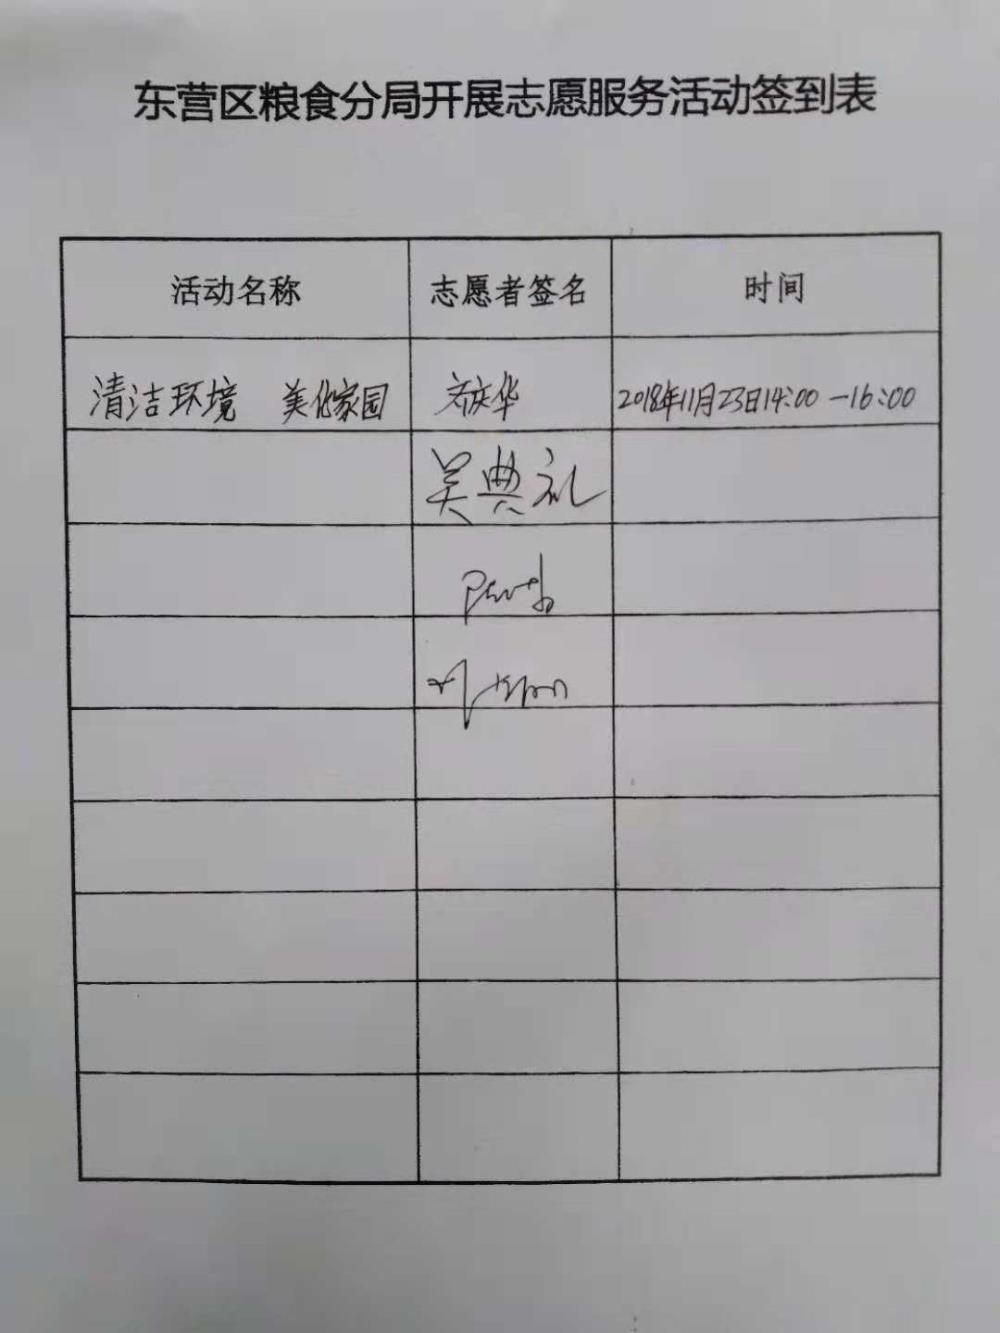 东营区粮食分局开展志愿服务活动签到表
活动名称 志愿者签名 时间
清洁环境 美化家园 齐庆华 2018年11月23日14:00-16:00
吴典礼